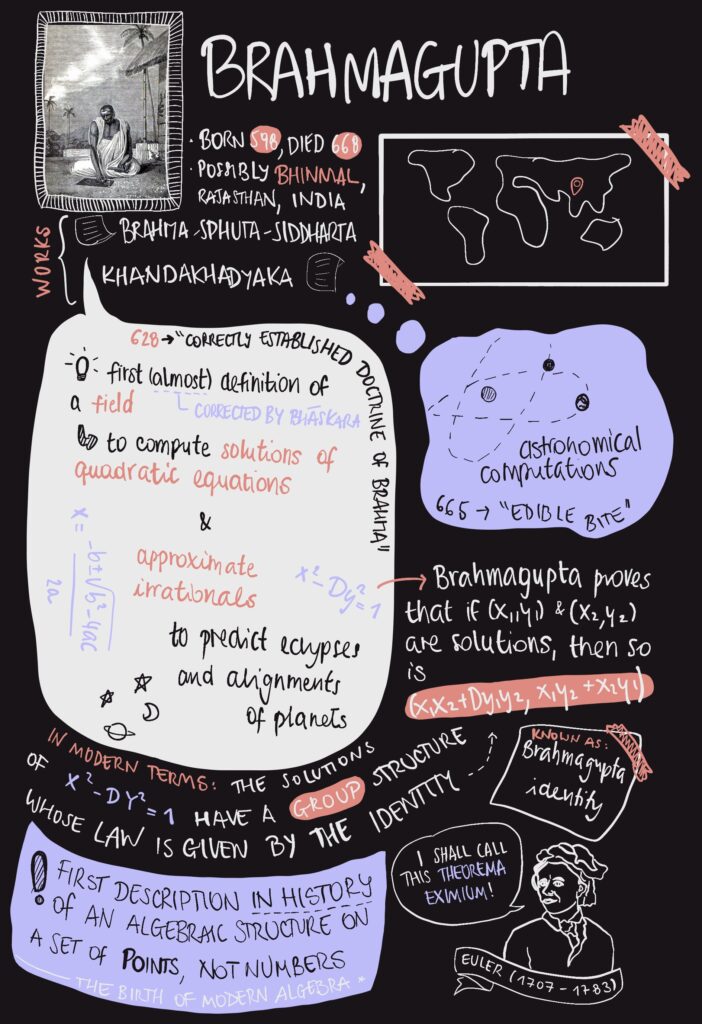 BRAHMAGUPTA
· BORN 598, DIED 668
· POSSIBLY BHINMAL,
RAJASTHAN, INDIA
WORKS
BRAHMA-SPHUTA-SIDDHARTA
KHANDAKHADYAKA
628 → "CORRECTLY ESTABLISHED DOCTRINE OF BRAHMA"
first (almost) definition of
a field
CORRECTED BY BHĀSKARA
to compute solutions of
quadratic equations
x = -b±√b²-4ac
2a
&
approximate
irrationals
x²-Dy²=1
to predict eclypses
and alignments
of planets
astronomical
computations
665 → "EDIBLE BITE"
Brahmagupta proves
that if (x₁,y₁) & (x₂,y₂)
are solutions, then so
is
(x₁x₂+Dy₁y₂, x₁y₂+x₂y₁)
KNOWN AS:
Brahmagupta
identity
IN MODERN TERMS: THE SOLUTIONS
OF X²-DY²=1 HAVE A GROUP STRUCTURE
WHOSE LAW IS GIVEN BY THE IDENTITY
! FIRST DESCRIPTION IN HISTORY
OF AN ALGEBRAIC STRUCTURE ON
A SET OF POINTS, NOT NUMBERS
THE BIRTH OF MODERN ALGEBRA *
I SHALL CALL
THIS THEOREMA
EXIMIUM!
EULER (1707 - 1783)